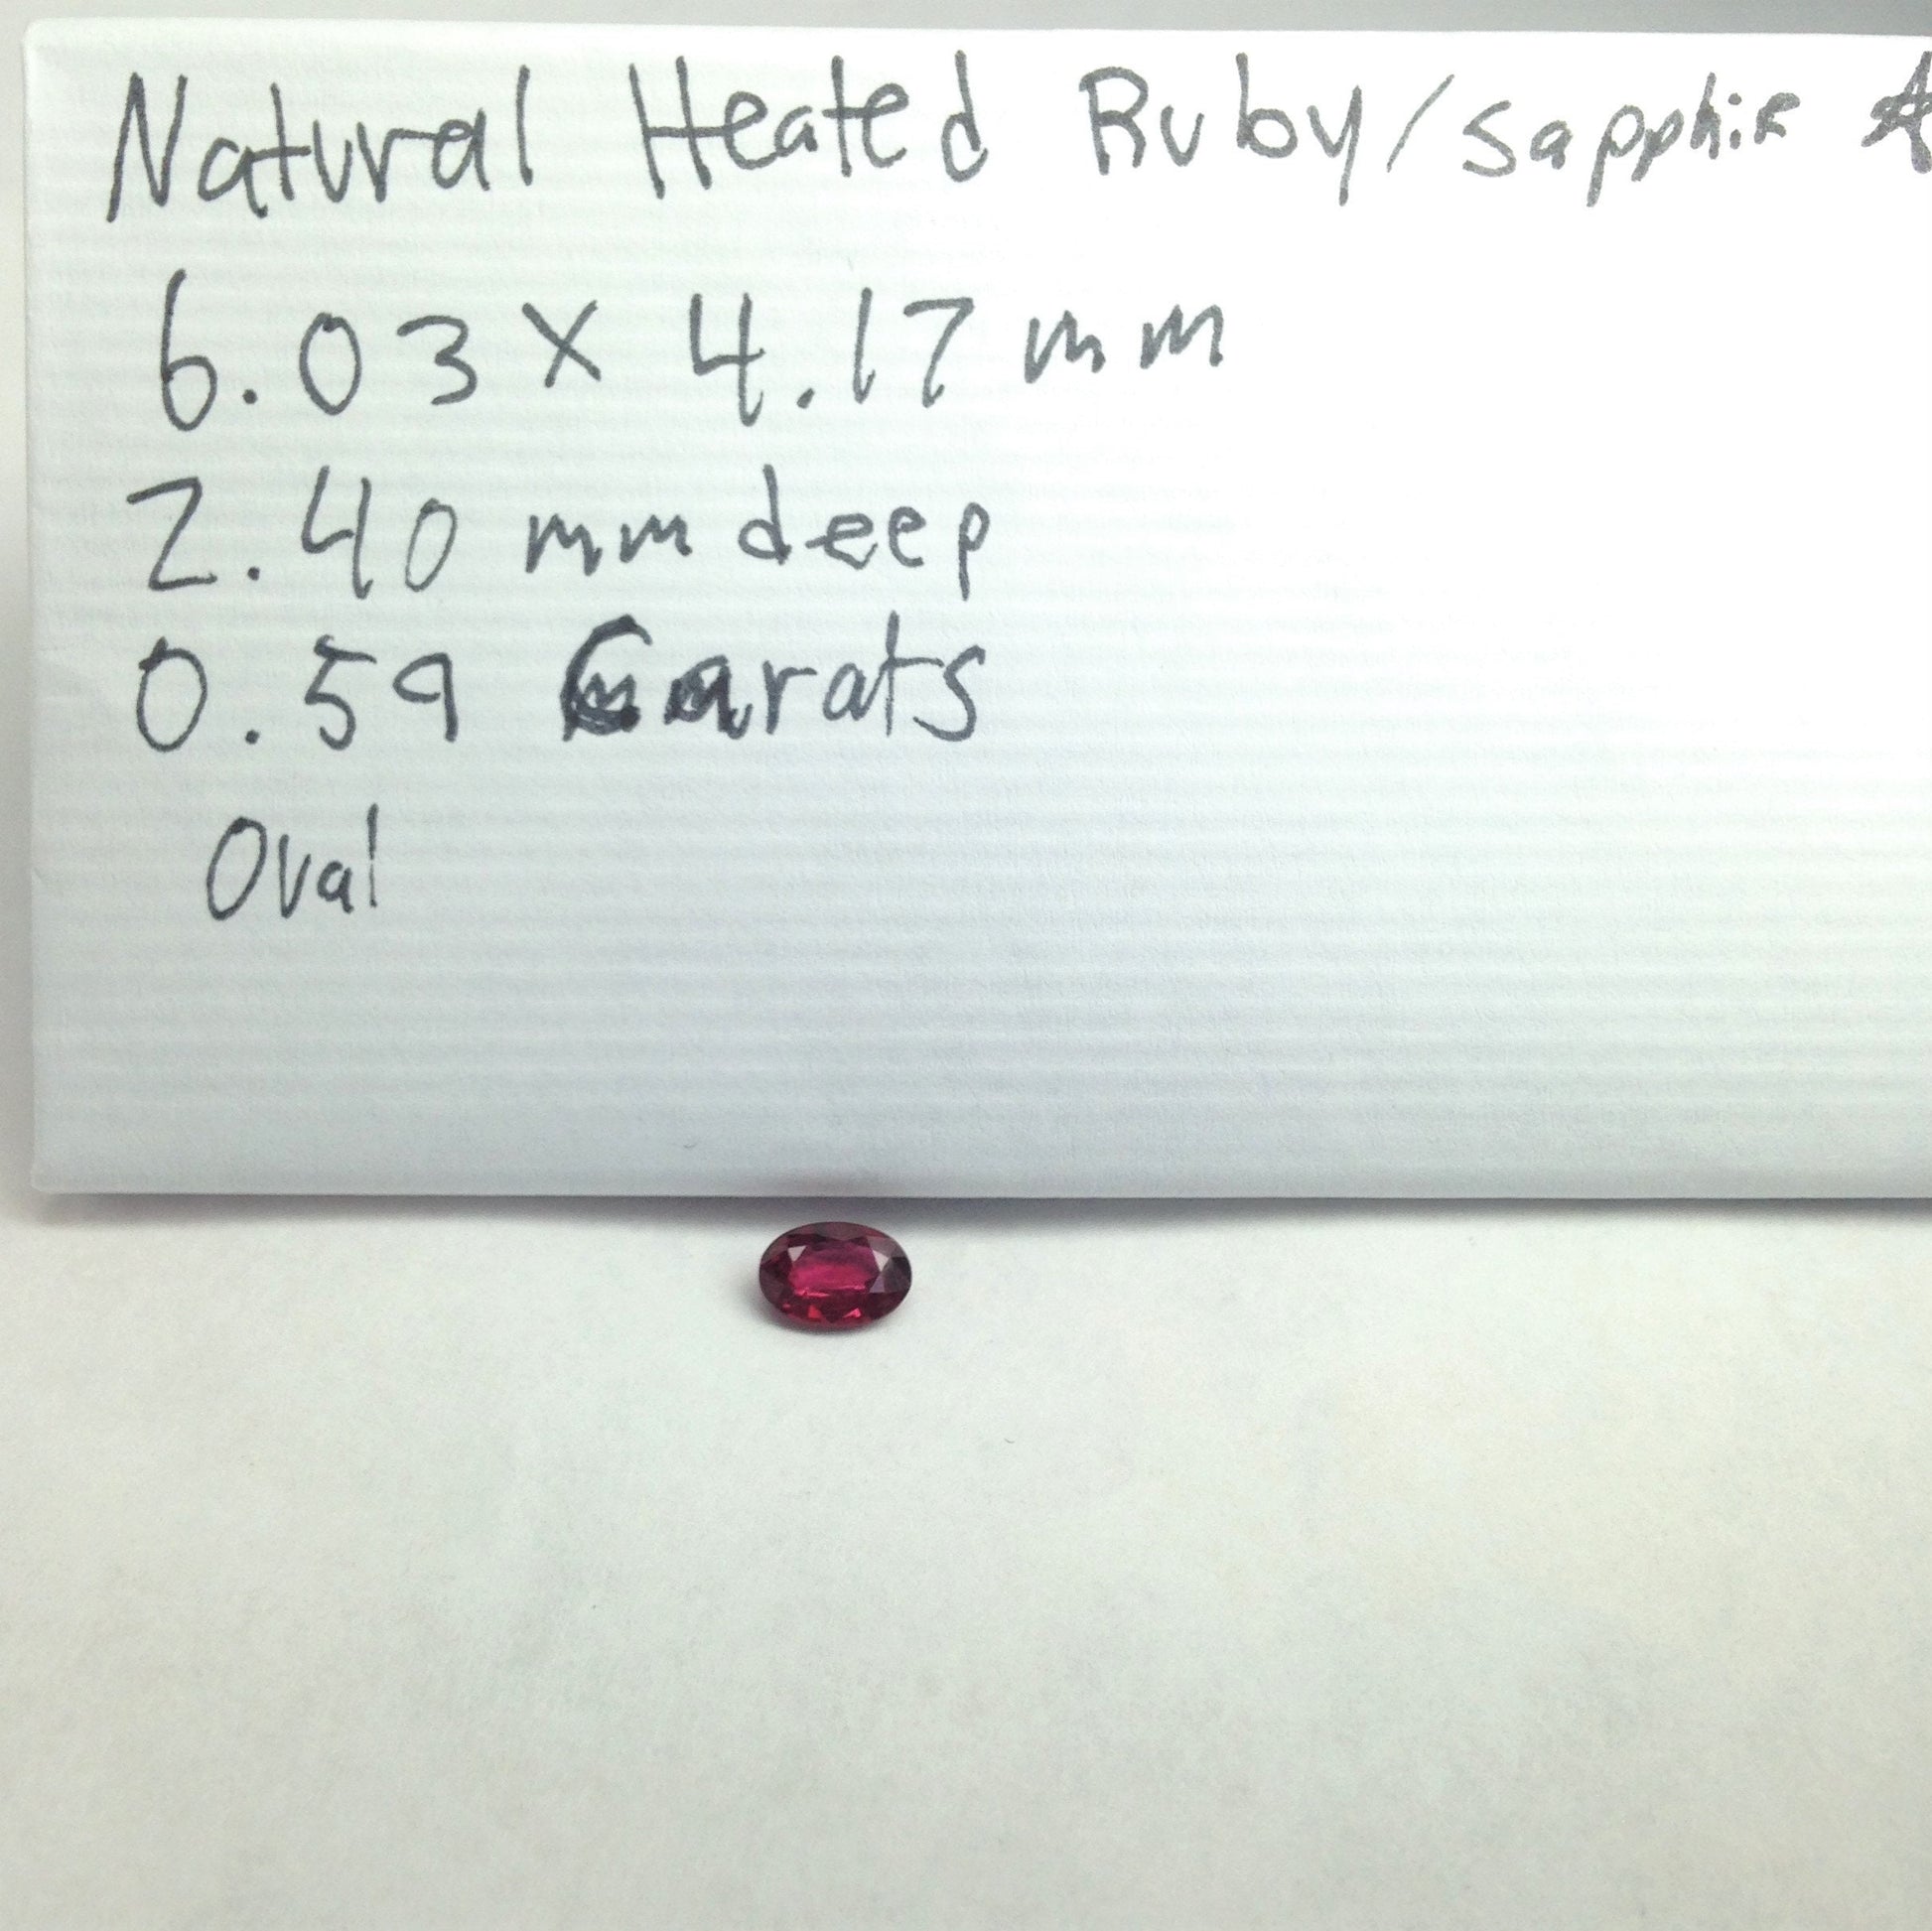 Natural Heated Ruby/Sapphire
6.03 x 4.17 mm
2.40 mm deep
0.59 Carats
Oval